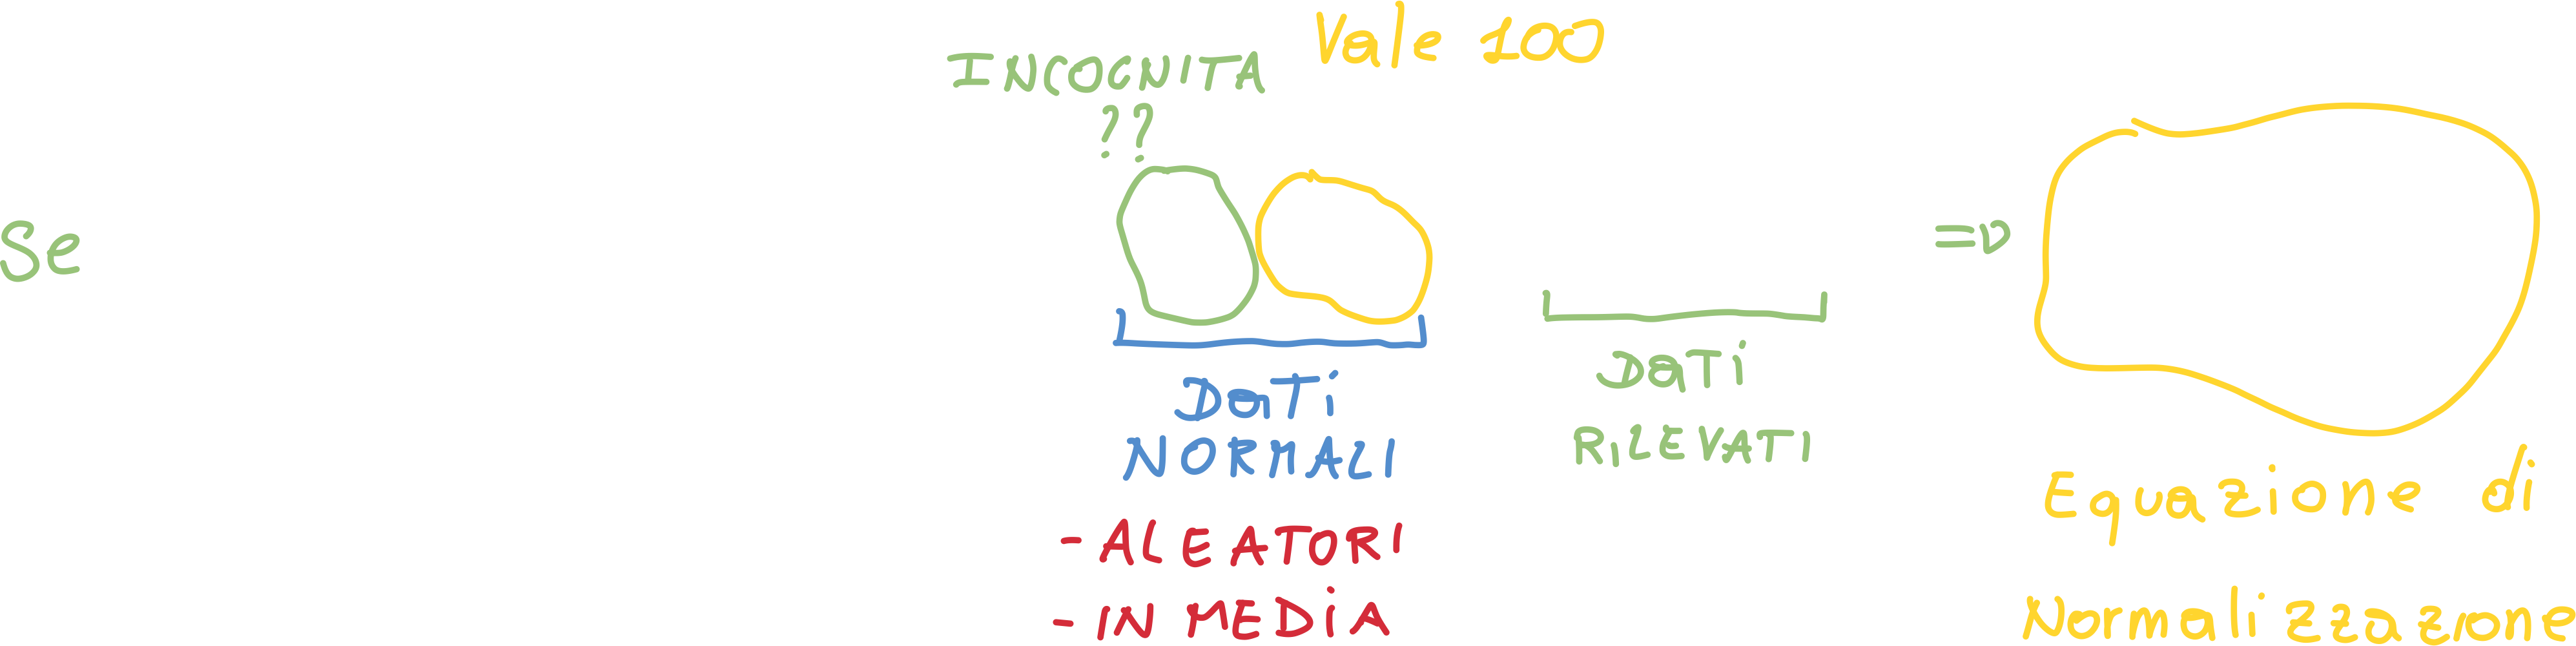 Vale 100
INCOGNITA
??
Se
=>
DaTi
NORMALI
- ALEATORI
- IN MEDiA
DaTi
RiLEVATI
Equazione di
Normalizzazione